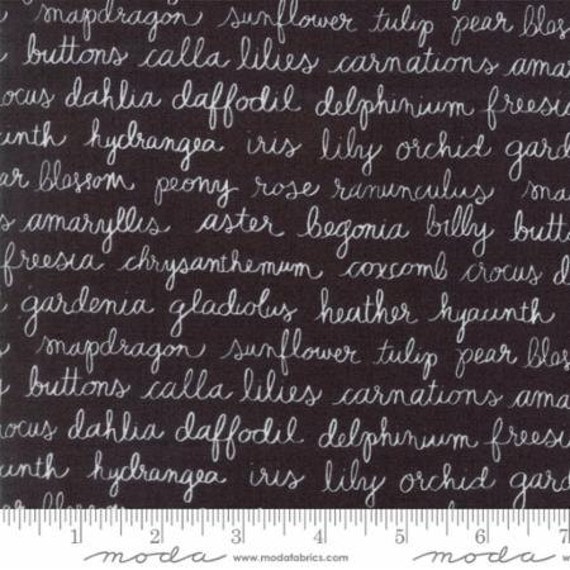 snapdragon sunflower tulip pear blos
buttons calla lilies carnations ama
ocus dahlia daffodil delphinium freesia
cinth hydrangea iris lily orchid gard
ar blossom peony rose ranunculus sna
s amaryllis aster begonia billy butt
freesia chrysanthemum coxcomb crocus d
gardenia gladiolus heather hyacinth
snapdragon sunflower tulip pear blos
buttons calla lilies carnations ama
ocus dahlia daffodil delphinium freesi
cinth hydrangea iris lily orchid gard
ar blossom
1 2 3 4 5 6 7
moda www.modafabrics.com moda www